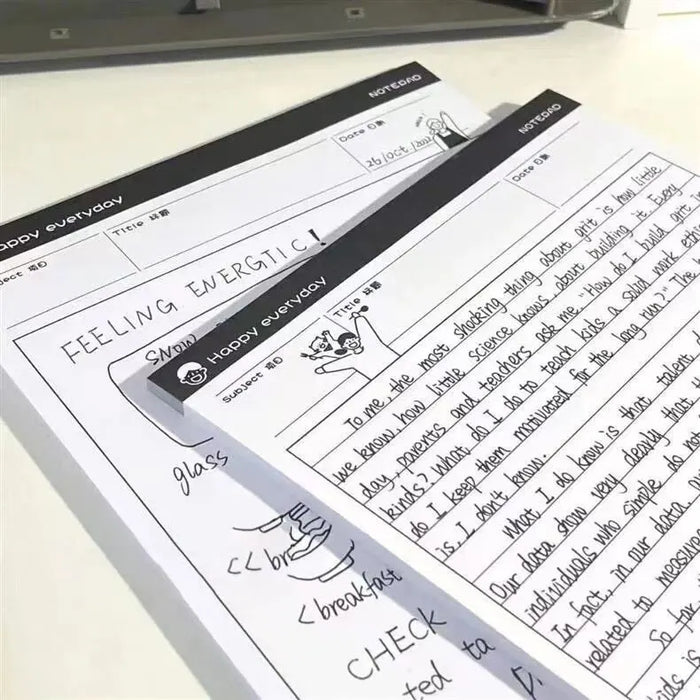 NOTEDAO
Happy everyday
Date 日期
26/Oct./202
Title 标题
Subject 项目
FEELING ENERGTIC!
SNOW
glass
<< br
< breakfast
CHECK
ted to
D.
NOTEDAO
Happy everyday
Date 日期
Title 标题
Subject 项目
To me, the most shocking thing about grit is how little
we know, how little science knows, about building it. Every
day, parents and teachers ask me. "How do I build grit in
kinds? What do I do to teach kids a solid work ethic
do I keep them motivated for the long run?" The
is, I don't know.
What I do know is that talent
Our data show very clearly that
individuals who simple do
In fact, in our data
related to measure
So far
kids is